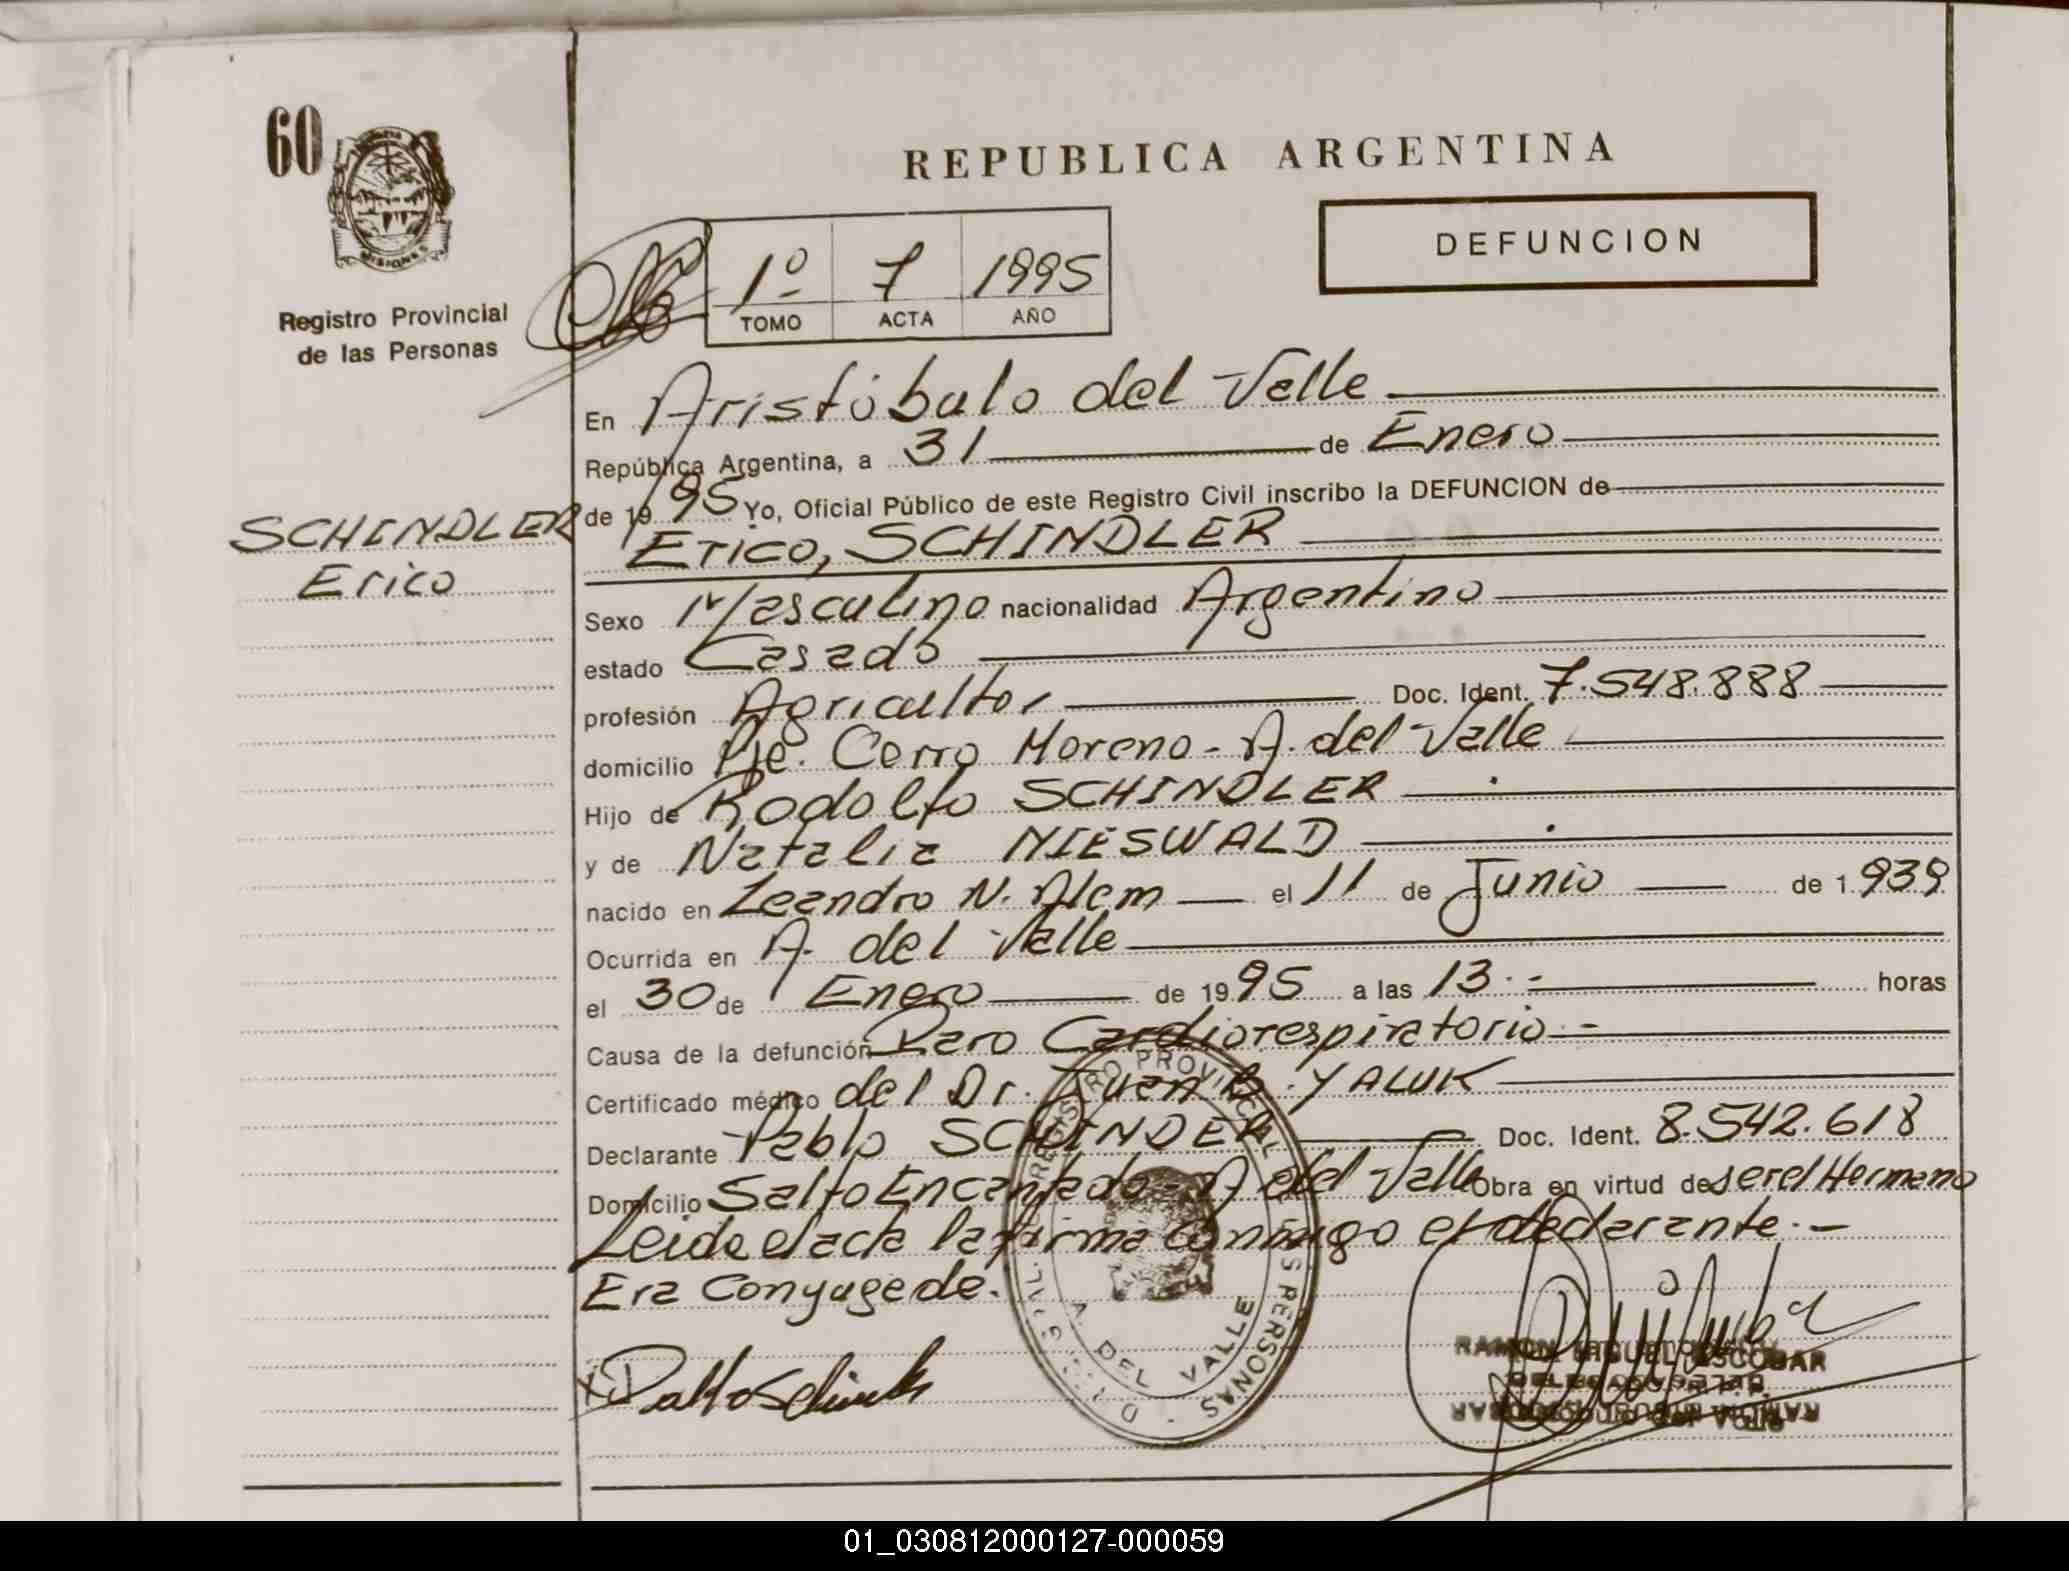 60
MISIONES
Registro Provincial
de las Personas
REPUBLICA ARGENTINA
DEFUNCION
1º 7 1995
TOMO ACTA AÑO
En Aristóbulo del Valle
República Argentina, a 31 de Enero
de 1995 Yo, Oficial Público de este Registro Civil inscribo la DEFUNCION de
SCHINDLER
Erico
Erico, SCHINDLER
Sexo Masculino nacionalidad Argentino
estado Casado
profesión Agricultor Doc. Ident. 7.548.888
domicilio Pje. Cerro Moreno - A. del Valle
Hijo de Rodolfo SCHINDLER
y de Natalia NIESWALD
nacido en Leandro N. Alem el 11 de Junio de 1.939
Ocurrida en A. del Valle
el 30 de Enero de 1995 a las 13.- horas
Causa de la defunción Paro Cardiorespiratorio.-
Certificado médico del Dr. Juan B. YALUK
Declarante Pablo SCHINDER Doc. Ident. 8.542.618
Domicilio Salto Encantado - A. del Valle Obra en virtud de ser el Hermano
Leida el acta la firma conmigo el declarante.-
Era Conyuge de.
REGISTRO PROVINCIAL DE LAS PERSONAS
A. DEL VALLE
RAMON MIGUEL ESCOBAR
01_030812000127-000059